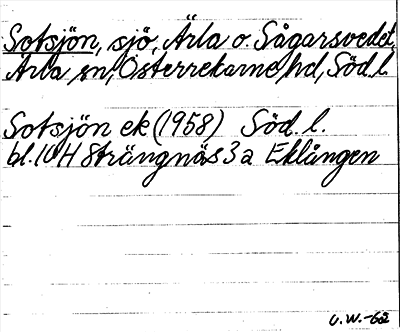 Sotsjön, sjö, Ärla o. Sågarsvedet,
Ärla sn, Österrekarne hd, Söd. l.
Sotsjön ek (1958) Söd. l.
bl. 10 H Strängnäs 3 a Eklången
U.W.-62